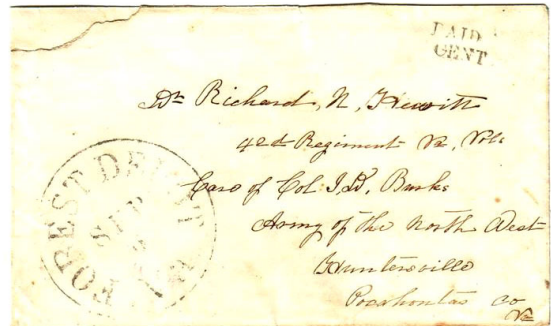 PAID
CENT
Dr Richard, N, Hewitt
42d Regiment Va, Vols
Care of Col: J, D, Burks
Army of the North West
Huntersville
Pocahontas co
Va
FOREST DEPOT
SEP